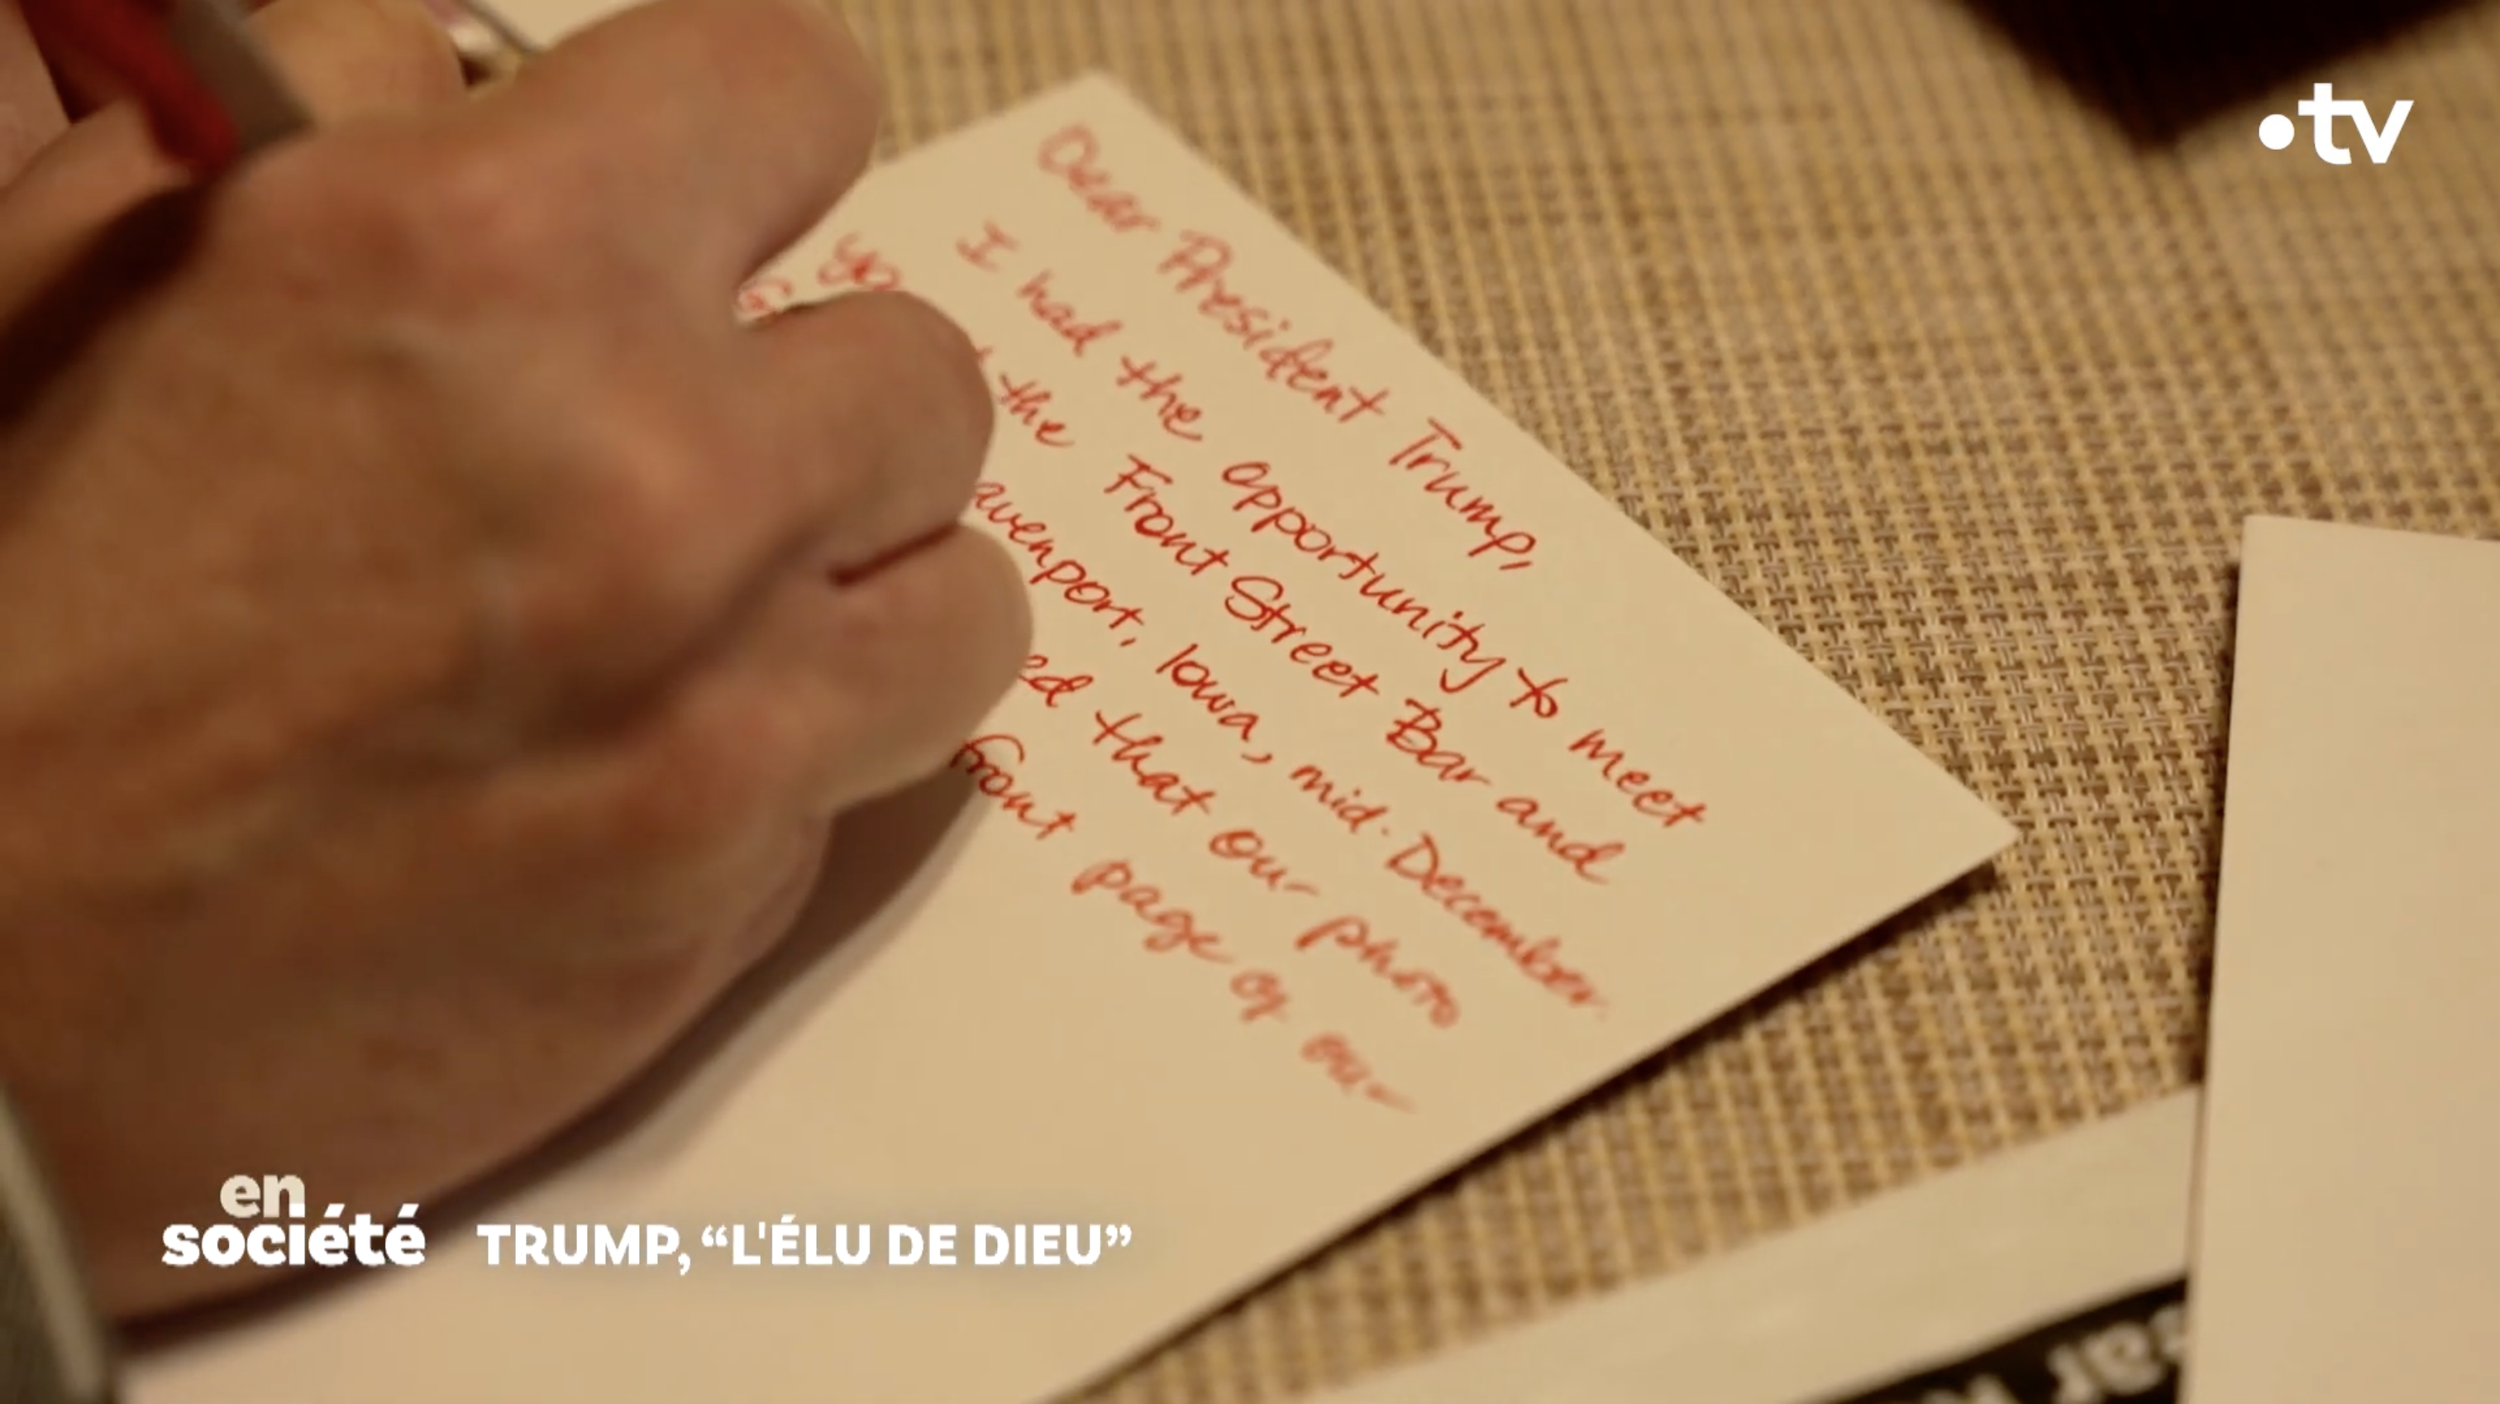 Dear President Trump,
I had the opportunity to meet
yo the Front Street Bar and
G avenport, Iowa, mid-December.
ed that our photo
front page of our
.tv
en
société
TRUMP, “L'ÉLU DE DIEU”